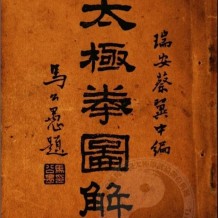 瑞安蔡翼中編
太極拳圖解
馬公愚題